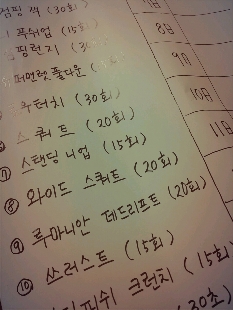 점핑 잭 (30회)
푸쉬업 (15회)
점핑런지 (30
퍼먼렛풀다운
투터치 (30회)
스쿼트 (20회)
⑦ 스탠딩 니업 (15회)
⑧ 와이드 스쿼트 (20회)
⑨ 루마니안 데드리프트 (20회)
⑩ 쓰러스트 (15회)
피쉬 크런치 (15회)
(30초)
8일
9일
10일
11일